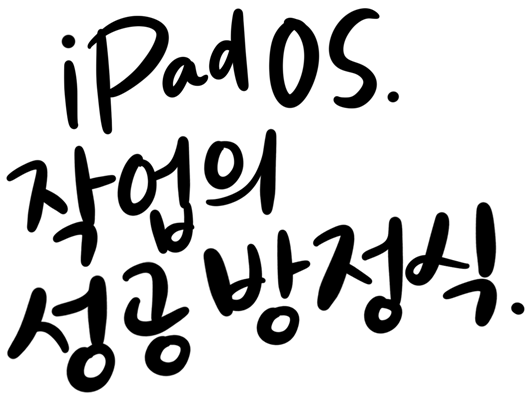 iPadOS.
작업의
성공 방정식.